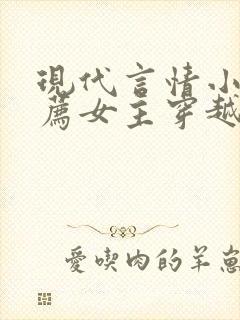 現代言情小
薦女主穿越
愛喫肉的羊崽